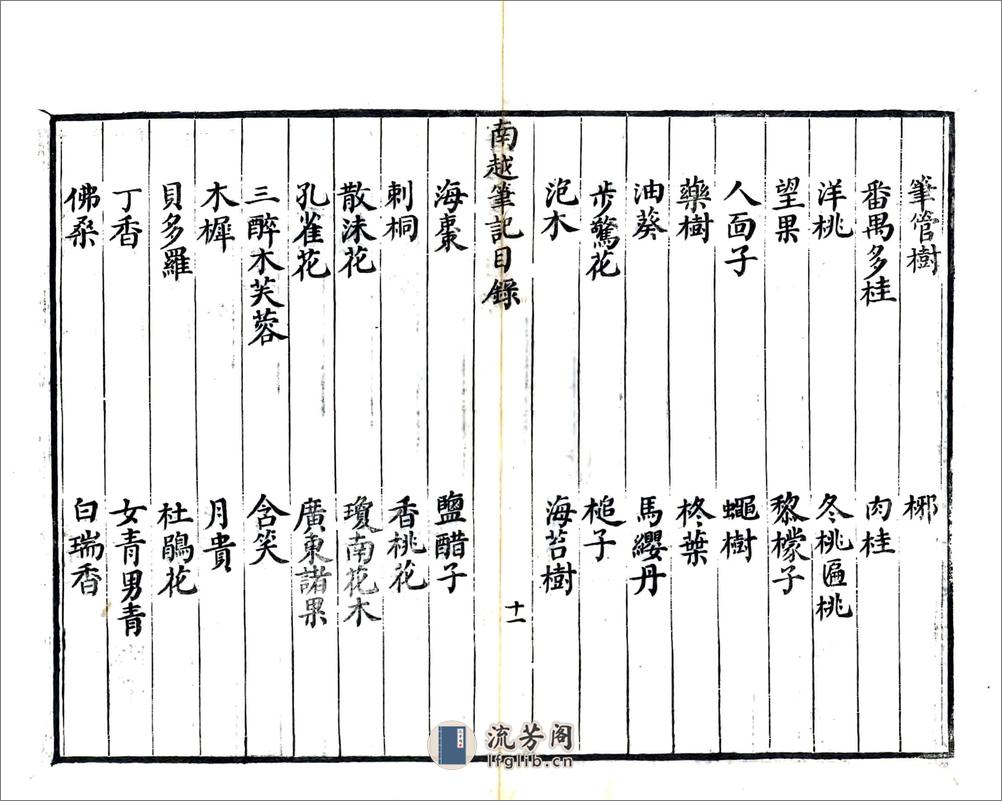 筆管樹 梛
番禺多桂 肉桂
洋桃 冬桃匾桃
望果 黎檬子
人面子 蠅樹
藥樹 柊葉
油葵 馬纓丹
步驚花 槌子
泡木 海苔樹
南越筆記目錄 十一
海棗 鹽醋子
刺桐 香桃花
散沫花 瓊南花木
孔雀花 廣東諸果
三醉木芙蓉 含笑
木樨 月貴
貝多羅 杜鵑花
丁香 女青男青
佛桑 白瑞香
流芳阁
lfglib.cn